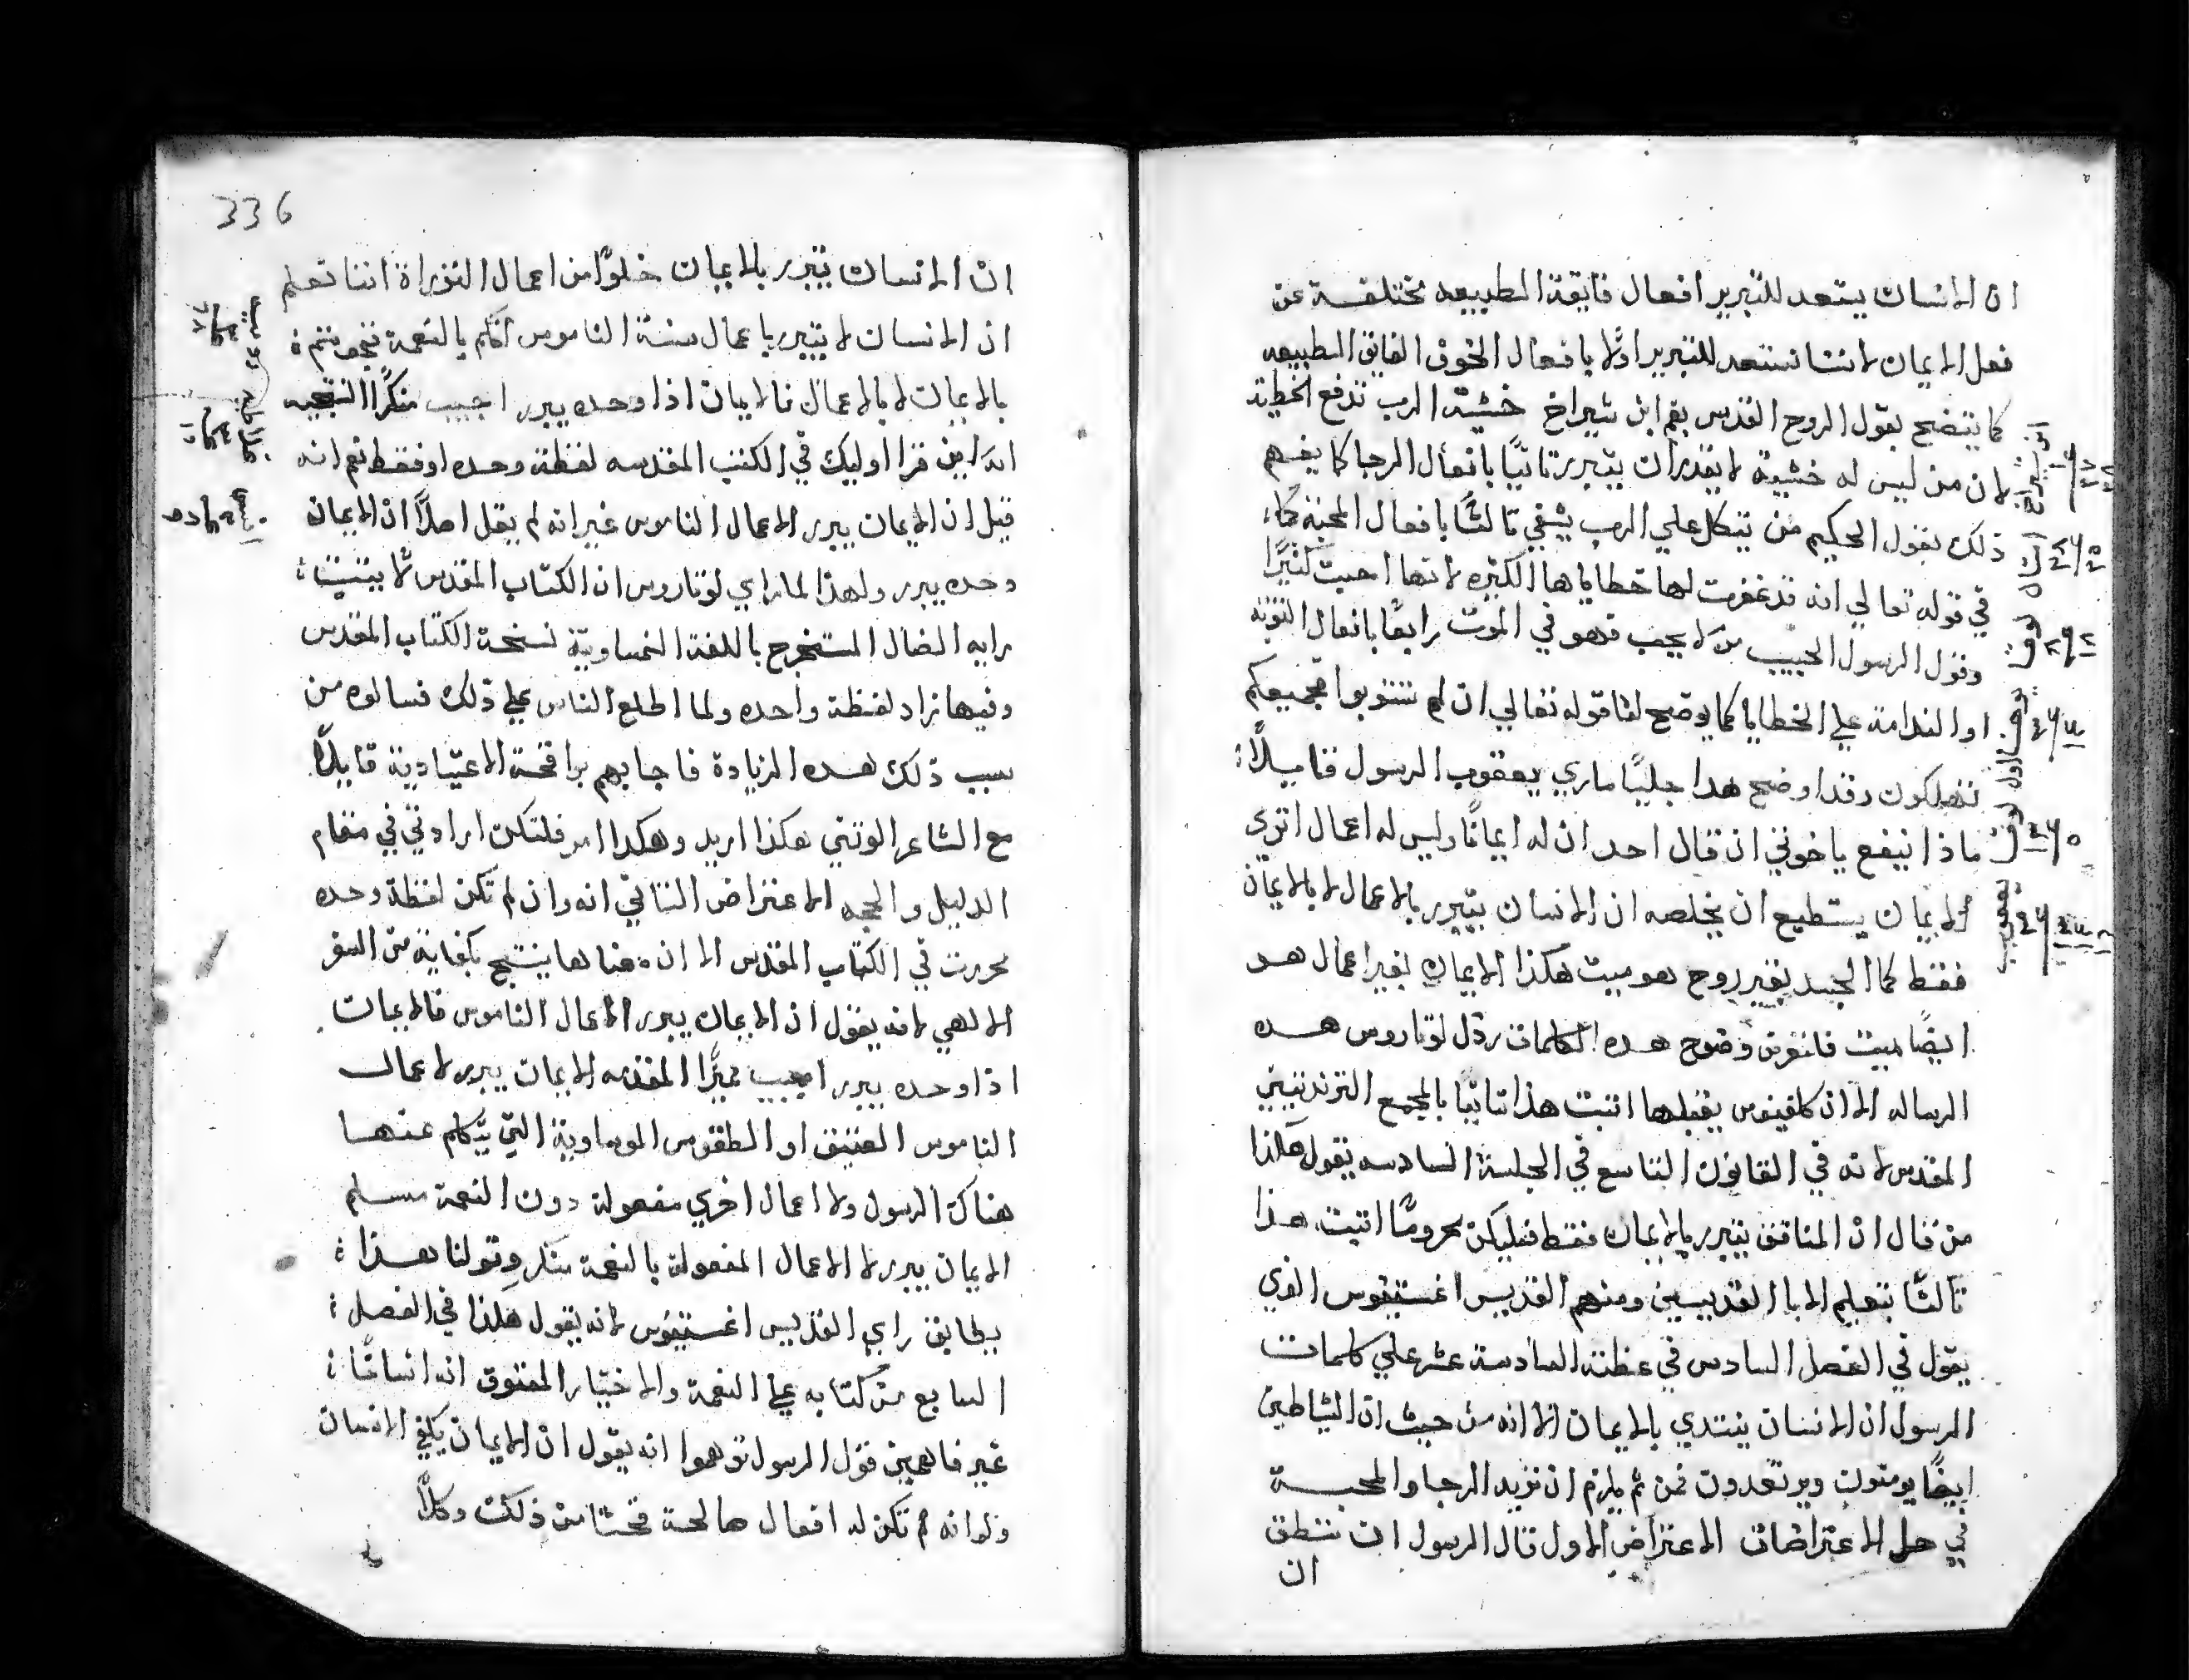 ان الانسان يستعد للتبرير افعال فايقة الطبيعه مختلفة عن
فعل الايمان لاننا نستعد للتبرير اولا بافعال الخوف الفايق الطبيعه
كما يتضح بقول الروح القدس بفم ابن شيراخ خشية الرب تدفع الخطية
لان من ليس له خشية لا يقدر ان يتبرر ثانيًا بافعال الرجا كما يفهم
ذلك بقول الحكيم من يتكل علي الرب يشفي ثالثًا بافعال المحبة كما
في قوله تعالي انه قد غفرت لها خطاياها الكثيره لانها احبت كثيرًا
وقول الرسول الحبيب من لا يحب فهو في الموت رابعًا بافعال التوبة
او الندامة علي الخطايا كما يوضح لنا قوله تعالي ان لم تتوبوا فجميعكم
تهلكون وقد اوضح هدا جليًا ماري يعقوب الرسول قايلًا:
ماذا ينفع ياخوتي ان قال احد ان له ايمانًا وليس له اعمال اترى
الايمان يستطيع ان يخلصه ان الانسان يتبرر بالاعمال لا بالايمان
فقط كما الجسد بغير روح هو ميت هكذا الايمان بغير اعمال هو
ايضًا ميت فانفرض وضوح هده الكلمات رذل لوتاروس هده
الرساله الا ان كلفينوس يقبلها اثبت هذا ثانيًا بالمجمع التردنتيني
المقدس لانه في القانون التاسع في الجلسة السادسه يقول هكذا
من قال ان المنافق يتبرر بالايمان فقط فليكن محرومًا اثبت هذا
ثالثًا بتعليم الابا القديسين ومنهم القديس اغستينوس الذي
يقول في الفصل السادس في عظته السادسة عشر علي كلمات
الرسول ان الانسان يبتدي بالايمان الا انه من حيث ان الشياطين
ايضًا يومنون ويرتعدون فمن ثم يلزم ان نزيد الرجا والمحبة
في حل الاعتراضات الاعتراض الاول قال الرسول ان تنطق
ان
ابن شيراخ
336
ان الانسان يتبرر بالايمان خلوًا من اعمال التوراة اننا نعلم
ان الانسان لا يتبرر باعمال سنة الناموس انكم بالنعمة نجوتم:
بالايمان لا بالاعمال فالايمان اذا وحده يبرر اجيب منكرًا النتيجه
لانه اين قرا اوليك في الكتب المقدسه لفظة وحده او فقط نعم انه
قيل ان الايمان يبرر لا اعمال الناموس غير انه لم يقل اصلًا ان الايمان
وحده يبرر ولهذا لما راي لوتاروس ان الكتاب المقدس لا يثبت:
رايه الضال استخرج باللغة النمساوية نسخة الكتاب المقدس
وفيها زاد لفظة واحده ولما اطلع الناس علي ذلك فسالوه عن
سبب ذلك هده الزيادة فاجابهم بوقاحته الاعتيادية قايلًا
مع الشاعر الوثني هكذا اريد وهكدا امر فلتكن ارادتي في مقام
الدليل والحجه الاعتراض الثاني انه وان لم تكن لفظة وحده
محررت في الكتاب المقدس الا ان معناها ينتج بكفاية من السفر
الالهي لانه يقول ان الايمان يبرر لا اعمال الناموس فالايمان
اذا وحده يبرر اجيب مميزًا المقدمه الايمان يبرر لا اعمال
الناموس العتيق او الطقوس الموساوية التي يتكلم عنها
هناك الرسول ولا اعمال اخري مفعولة دون النعمة مسلم
الايمان يبرر لا الاعمال المفعولة بالنعمة منكر وقولنا هذا:
يطابق راي القديس اغستينوس لانه يقول هكذا في الفصل:
السابع من كتابه علي النعمة والاختيار المعتوق ان اناسًا:
غير فاهمين قول الرسول توهموا انه يقول ان الايمان يكفي الانسان
ولو انه لم تكن له افعال صالحة فحشا من ذلك وكلا